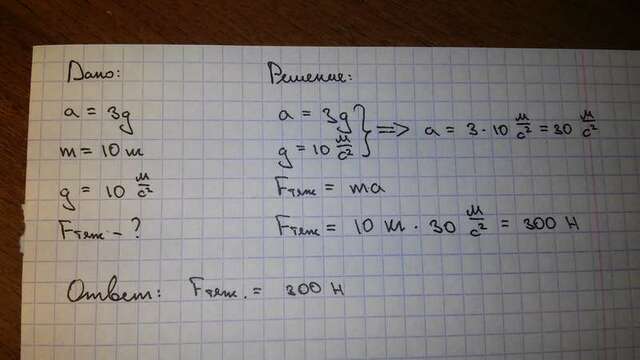 Дано:
a = 3g
m = 10 кг
g = 10 м/с²
Fтяж - ?
Решение:
a = 3g
g = 10 м/с² } => a = 3 · 10 м/с² = 30 м/с²
Fтяж = ma
Fтяж = 10 кг · 30 м/с² = 300 Н
Ответ: Fтяж. = 300 Н